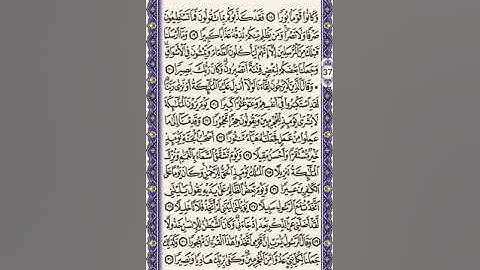 وَكَانُوا۟ قَوْمًۢا بُورًا ۝ فَقَدْ كَذَّبُوكُم بِمَا تَقُولُونَ فَمَا تَسْتَطِيعُونَ
صَرْفًا وَلَا نَصْرًا ۚ وَمَن يَظْلِم مِّنكُمْ نُذِقْهُ عَذَابًا كَبِيرًا ۝ وَمَآ أَرْسَلْنَا
قَبْلَكَ مِنَ ٱلْمُرْسَلِينَ إِلَّآ إِنَّهُمْ لَيَأْكُلُونَ ٱلطَّعَامَ وَيَمْشُونَ فِى ٱلْأَسْوَاقِ ۗ
وَجَعَلْنَا بَعْضَكُمْ لِبَعْضٍ فِتْنَةً أَتَصْبِرُونَ ۗ وَكَانَ رَبُّكَ بَصِيرًا ۝
37
وَقَالَ ٱلَّذِينَ لَا يَرْجُونَ لِقَآءَنَا لَوْلَآ أُنزِلَ عَلَيْنَا ٱلْمَلَٰٓئِكَةُ أَوْ نَرَىٰ رَبَّنَا ۗ
لَقَدِ ٱسْتَكْبَرُوا۟ فِىٓ أَنفُسِهِمْ وَعَتَوْ عُتُوًّا كَبِيرًا ۝ يَوْمَ يَرَوْنَ ٱلْمَلَٰٓئِكَةَ
لَا بُشْرَىٰ يَوْمَئِذٍ لِّلْمُجْرِمِينَ وَيَقُولُونَ حِجْرًا مَّحْجُورًا ۝ وَقَدِمْنَآ إِلَىٰ مَا
عَمِلُوا۟ مِنْ عَمَلٍ فَجَعَلْنَٰهُ هَبَآءً مَّنثُورًا ۝ أَصْحَٰبُ ٱلْجَنَّةِ يَوْمَئِذٍ
خَيْرٌ مُّسْتَقَرًّا وَأَحْسَنُ مَقِيلًا ۝ وَيَوْمَ تَشَقَّقُ ٱلسَّمَآءُ بِٱلْغَمَٰمِ وَنُزِّلَ
ٱلْمَلَٰٓئِكَةُ تَنزِيلًا ۝ ٱلْمُلْكُ يَوْمَئِذٍ ٱلْحَقُّ لِلرَّحْمَٰنِ ۚ وَكَانَ يَوْمًا عَلَى
ٱلْكَٰفِرِينَ عَسِيرًا ۝ وَيَوْمَ يَعَضُّ ٱلظَّالِمُ عَلَىٰ يَدَيْهِ يَقُولُ يَٰلَيْتَنِى
ٱتَّخَذْتُ مَعَ ٱلرَّسُولِ سَبِيلًا ۝ يَٰوَيْلَتَىٰ لَيْتَنِى لَمْ أَتَّخِذْ فُلَانًا خَلِيلًا ۝
لَّقَدْ أَضَلَّنِى عَنِ ٱلذِّكْرِ بَعْدَ إِذْ جَآءَنِى ۗ وَكَانَ ٱلشَّيْطَٰنُ لِلْإِنسَٰنِ خَذُولًا ۝
وَقَالَ ٱلرَّسُولُ يَٰرَبِّ إِنَّ قَوْمِى ٱتَّخَذُوا۟ هَٰذَا ٱلْقُرْءَانَ مَهْجُورًا ۝ وَكَذَٰلِكَ
جَعَلْنَا لِكُلِّ نَبِىٍّ عَدُوًّا مِّنَ ٱلْمُجْرِمِينَ ۗ وَكَفَىٰ بِرَبِّكَ هَادِيًا وَنَصِيرًا ۝